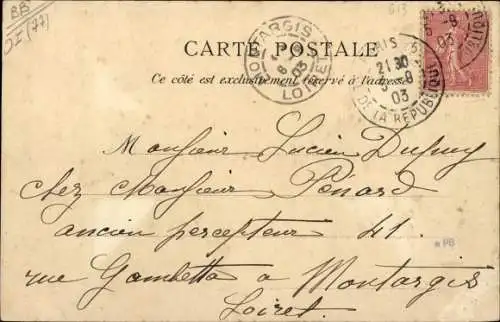 BB
I (77)
613
CARTE POSTALE
Ce côté est exclusivement réservé à l'adresse
MONTARGIS
8
03
LOIRET
PARIS
21 30
3 8
03
DE LA REPUBLIQUE
8
03
Monsieur Lucien Dufuey
chez Monsieur Pénard
ancien percepteur 41
rue Gambetta à Montargis
Loiret.
*PB